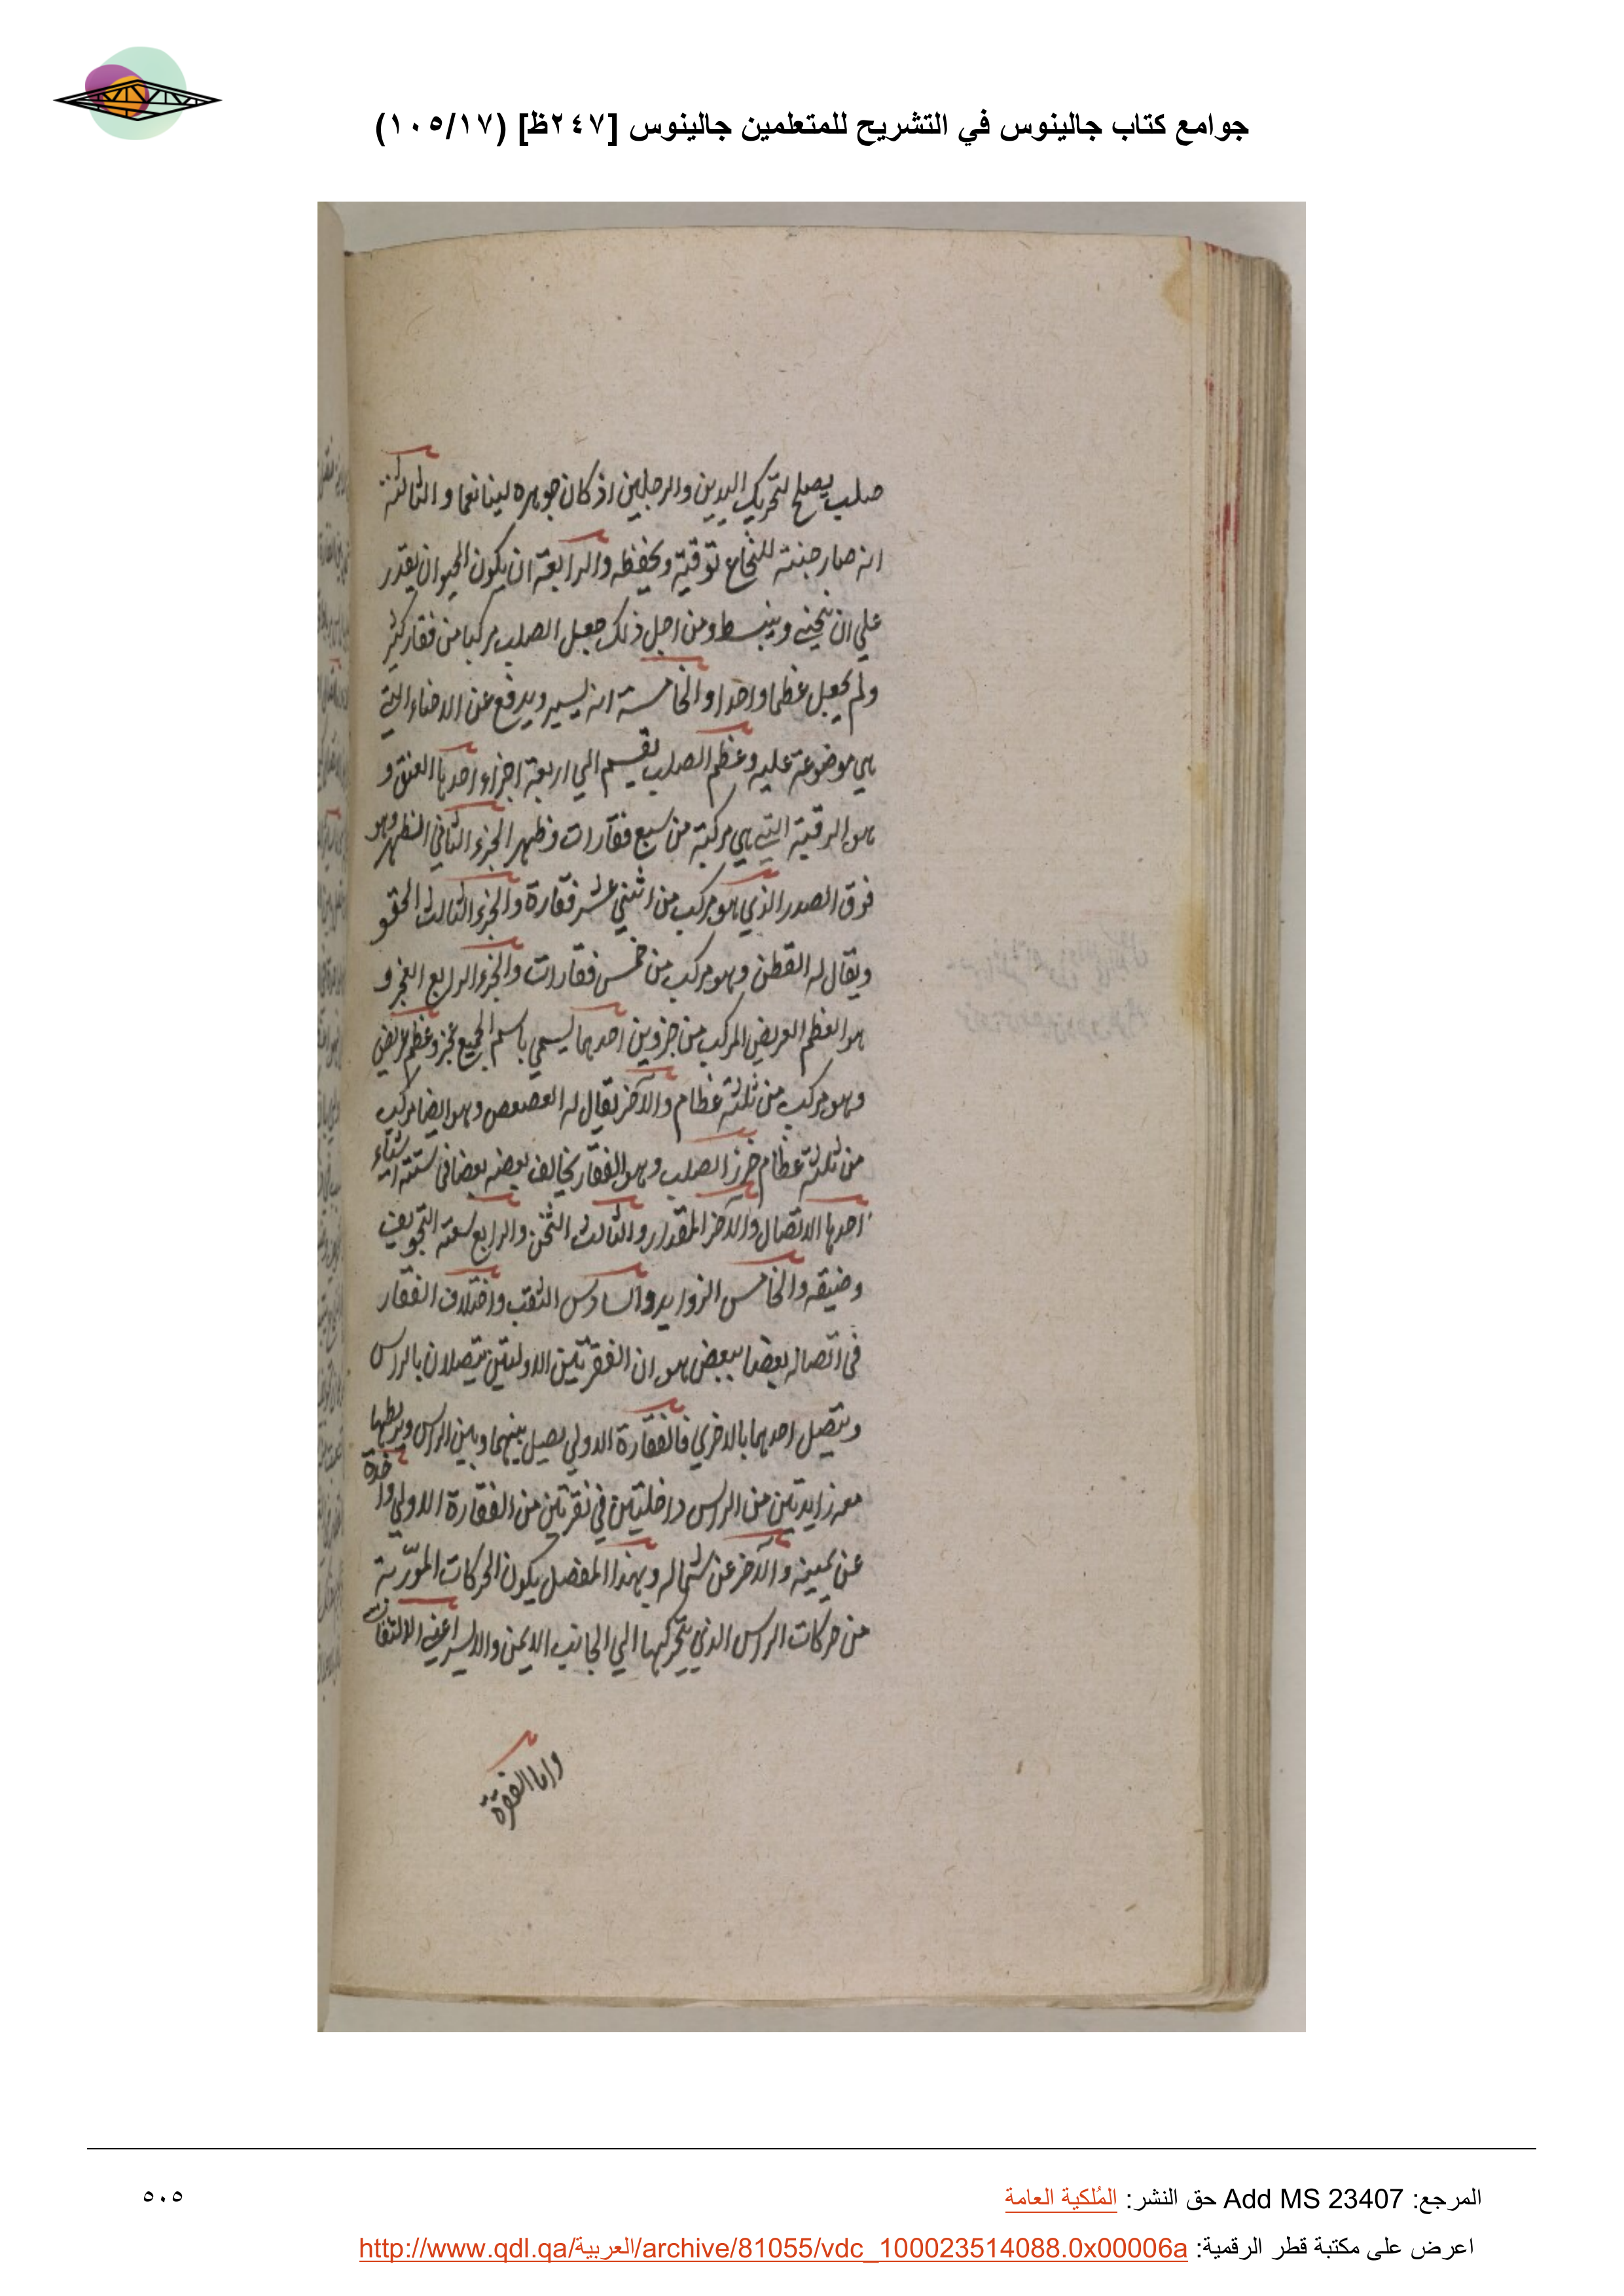 جوامع كتاب جالينوس في التشريح للمتعلمين جالينوس [٢٤٧ظ] (١٠٥/١٧)
صلب يصلح لتحريك اليدين والرجلين اذ كان جوهره لينا نعما والثالثة
انه صار جنته للنخاع توقية وتحفظه والرابعة ان يكون الحيوان يقدر
علي ان ينحني وينبسط ومن اجل ذلك جعل الصلب مركبا من فقار كثير
ولم يجعل عظما واحدا والخامسة انه يسير ويدفع عن الاحشاء التي
هي موضوعة عليه وعظم الصلب يقسم الي اربعة اجزاء احدها العنق و
هو الرقبة التي هي مركبة من سبع فقارات وظهر الجزء الثاني الظهر وهو
فوق الصدر الذي هو مركب من اثني عشر فقارة والجزء الثالث الحقو
ويقال له القطن وهو مركب من خمس فقارات والجزء الرابع العجز و
هو العظم العريض المركب من جزوين احدهما يسمي باسم الجميع عجز وعظم عريض
وهو مركب من ثلثة عظام والآخر يقال له العصعص وهو ايضا مركب
من ثلثة عظام خرز الصلب وهو الفقار يخالف بعضه بعضا في ستة اشياء
احدها الاتصال والآخر المقدار والثالث الثخن والرابع سعة التجويف
وضيقه والخامس الزوايد والسادس الثقب واختلاف الفقار
في اتصاله بعضا ببعض هو ان الفقرتين الاوليتين يتصلان بالراس
ويتصل احدهما بالاخري فالفقارة الاولي يصيل بينهما وبين الراس ويربطها
معه زايدتين من الراس داخليتين في نقرتين من الفقارة الاولي واحدة
عن يمينه والآخر عن شماله وبهذا المفصل يكون الحركات المورّبة
من حركات الراس الذي يتحرك بها الي الجانب الايمن والايسر اعني الالتفات
واما الفقرة
المرجع: Add MS 23407 حق النشر: المُلكية العامة
٥٠٥
اعرض على مكتبة قطر الرقمية: http://www.qdl.qa/العربية/archive/81055/vdc_100023514088.0x00006a